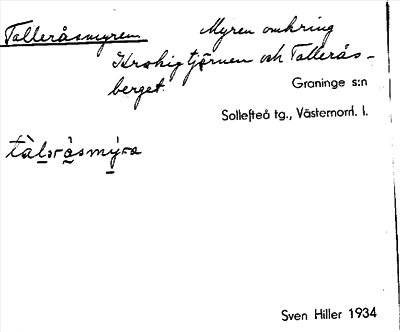 Talleråsmyren Myren omkring
Krokigtjärnen och Tallerås-
berget.
Graninge s:n
Sollefteå tg., Västernorrl. l.
tàləråsmýra
Sven Hiller 1934